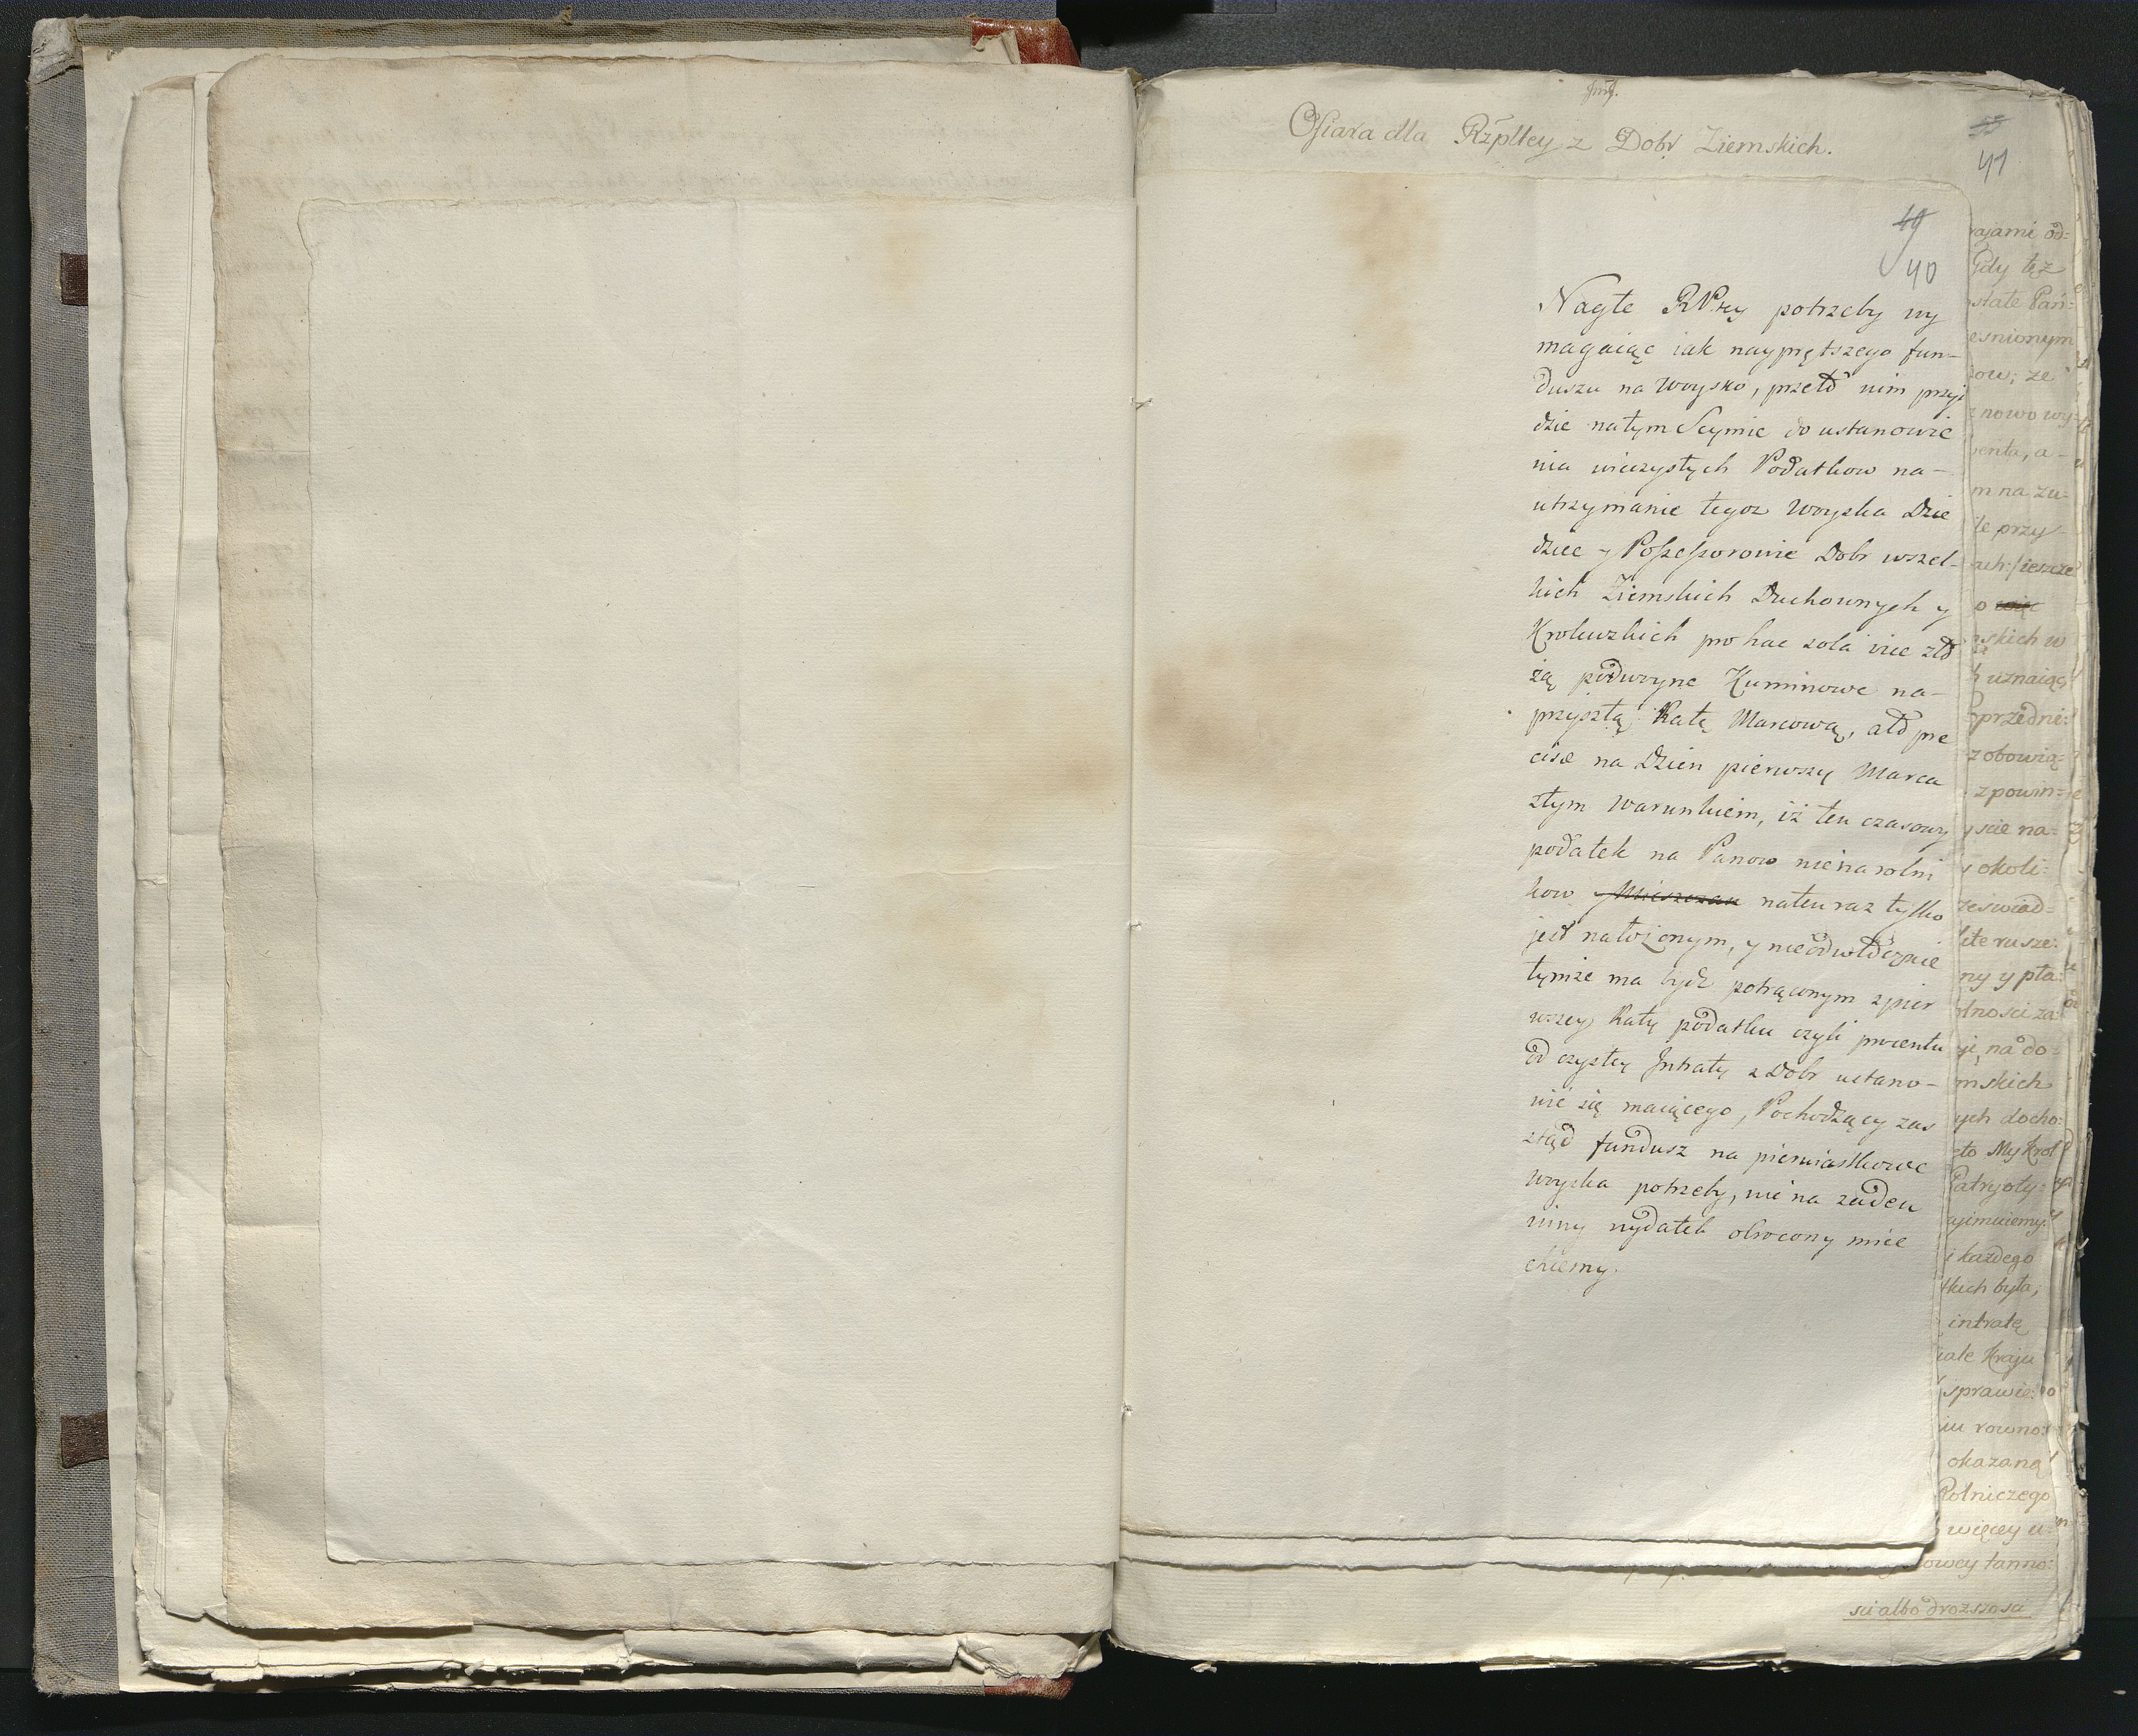 Ofiara dla Rzpltey z Dobr Ziemskich.
41
49
40
Nagłe RPtey potrzeby wy
magaiąc iak nayprętszego fun-
duszu na woysko, przeto nim przyi
dzie natym Seymie do ustanowie
nia wieczystych Podatkow na-
utrzymanie tegoz woyska Dzie
dzice y Possessorowie Dobr wszel-
kich Ziemskich Duchownych y
Krolewskich pro hac sola vice zło
żą podwoyne Kuminowe na-
przyszłą Ratę Marcową, albo pre
cise na Dzien pierwszy Marca
ztym warunkiem, iż ten czasowy
podatek na Panow nie na rolni
kow y Mieszczan naten raz tylko
jest nałożonym, y nieodwłocznie
tymże ma bydz potrąconym zpier
wszey Raty podatku czyli procentu
od czystey Intraty z Dobr ustano-
wić się maiącego, Pochodzący zas
ztąd fundusz na pierwiastkowe
woyska potrzeby, nie na żaden
inny wydatek obrocony mieć
chcemy.
rajami od=
Gdy też
stałe Pań=
esnionym
ow; że
z nowo wy=
centa, a-
m na zu=
le przy-
ach: jeszcze
o więc
skich w
uznaiąc
przedni=
z obowią=
z powin=
scie na=
okoli=
ze swiad=
ite rusze=
ny y pła=
lności za=
ię na do=
mskich
ych docho=
to My Krol
Patryoty=
yimuiemy
i każdego
skich była;
intratę
iałe Kraju
sprawie=
iu rowno=
okazaną
Rolniczego
więcey u=
owey tanno=
sci albo droższosci